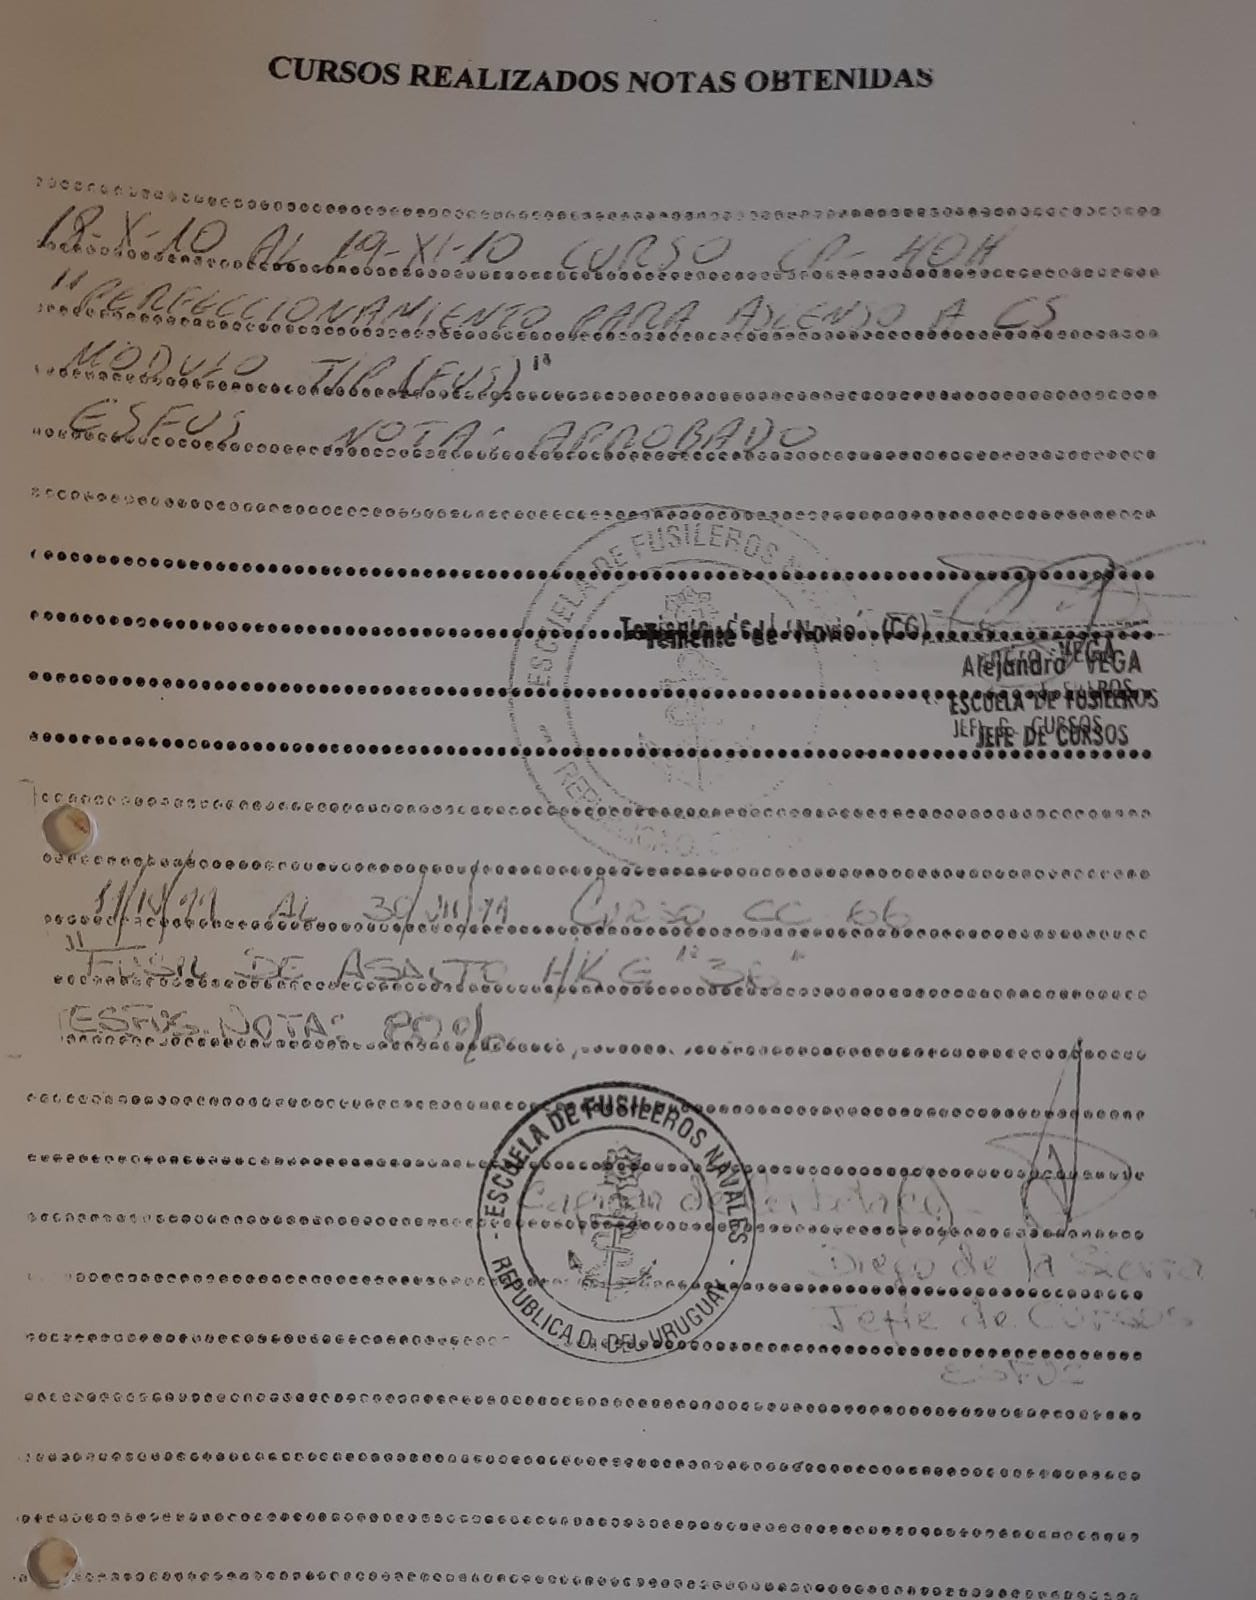 CURSOS REALIZADOS NOTAS OBTENIDAS
18-X-10 AL 19-XI-10 CURSO CP-
"PERFECCIONAMIENTO PARA ASCENSO A CS
MODULO TIP (FUS)"
ESFUS NOTA: APROBADO
ESCUELA DE FUSILEROS
REPUBLICA O.
Teniente de Navio (CG)
Alejandro VEGA
ESCUELA DE FUSILEROS
JEFE DE CURSOS
11/IV/11 AL 30/VII/11 CURSO CC 66
"FUSIL DE ASALTO HK G "36"
ESFUS NOTA: 80%
- ESCUELA DE FUSILEROS NAVALES -
REPUBLICA O. DEL URUGUAY
Capitan de
Diego de la Sierra
Jefe de Cursos
ESFUS